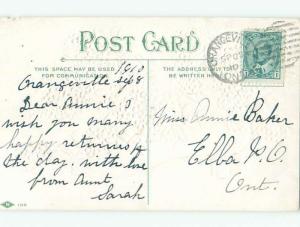 POST CARD
THIS SPACE MAY BE USED
FOR COMMUNICATION.
THE ADDRESS ONLY
BE WRITTEN H
1910
Orangeville Sep 8
Dear Annie I
wish you many
happy returns of
the day. with love
from Aunt
Sarah
Miss Annie Baker
Elba P.O.
Ont.